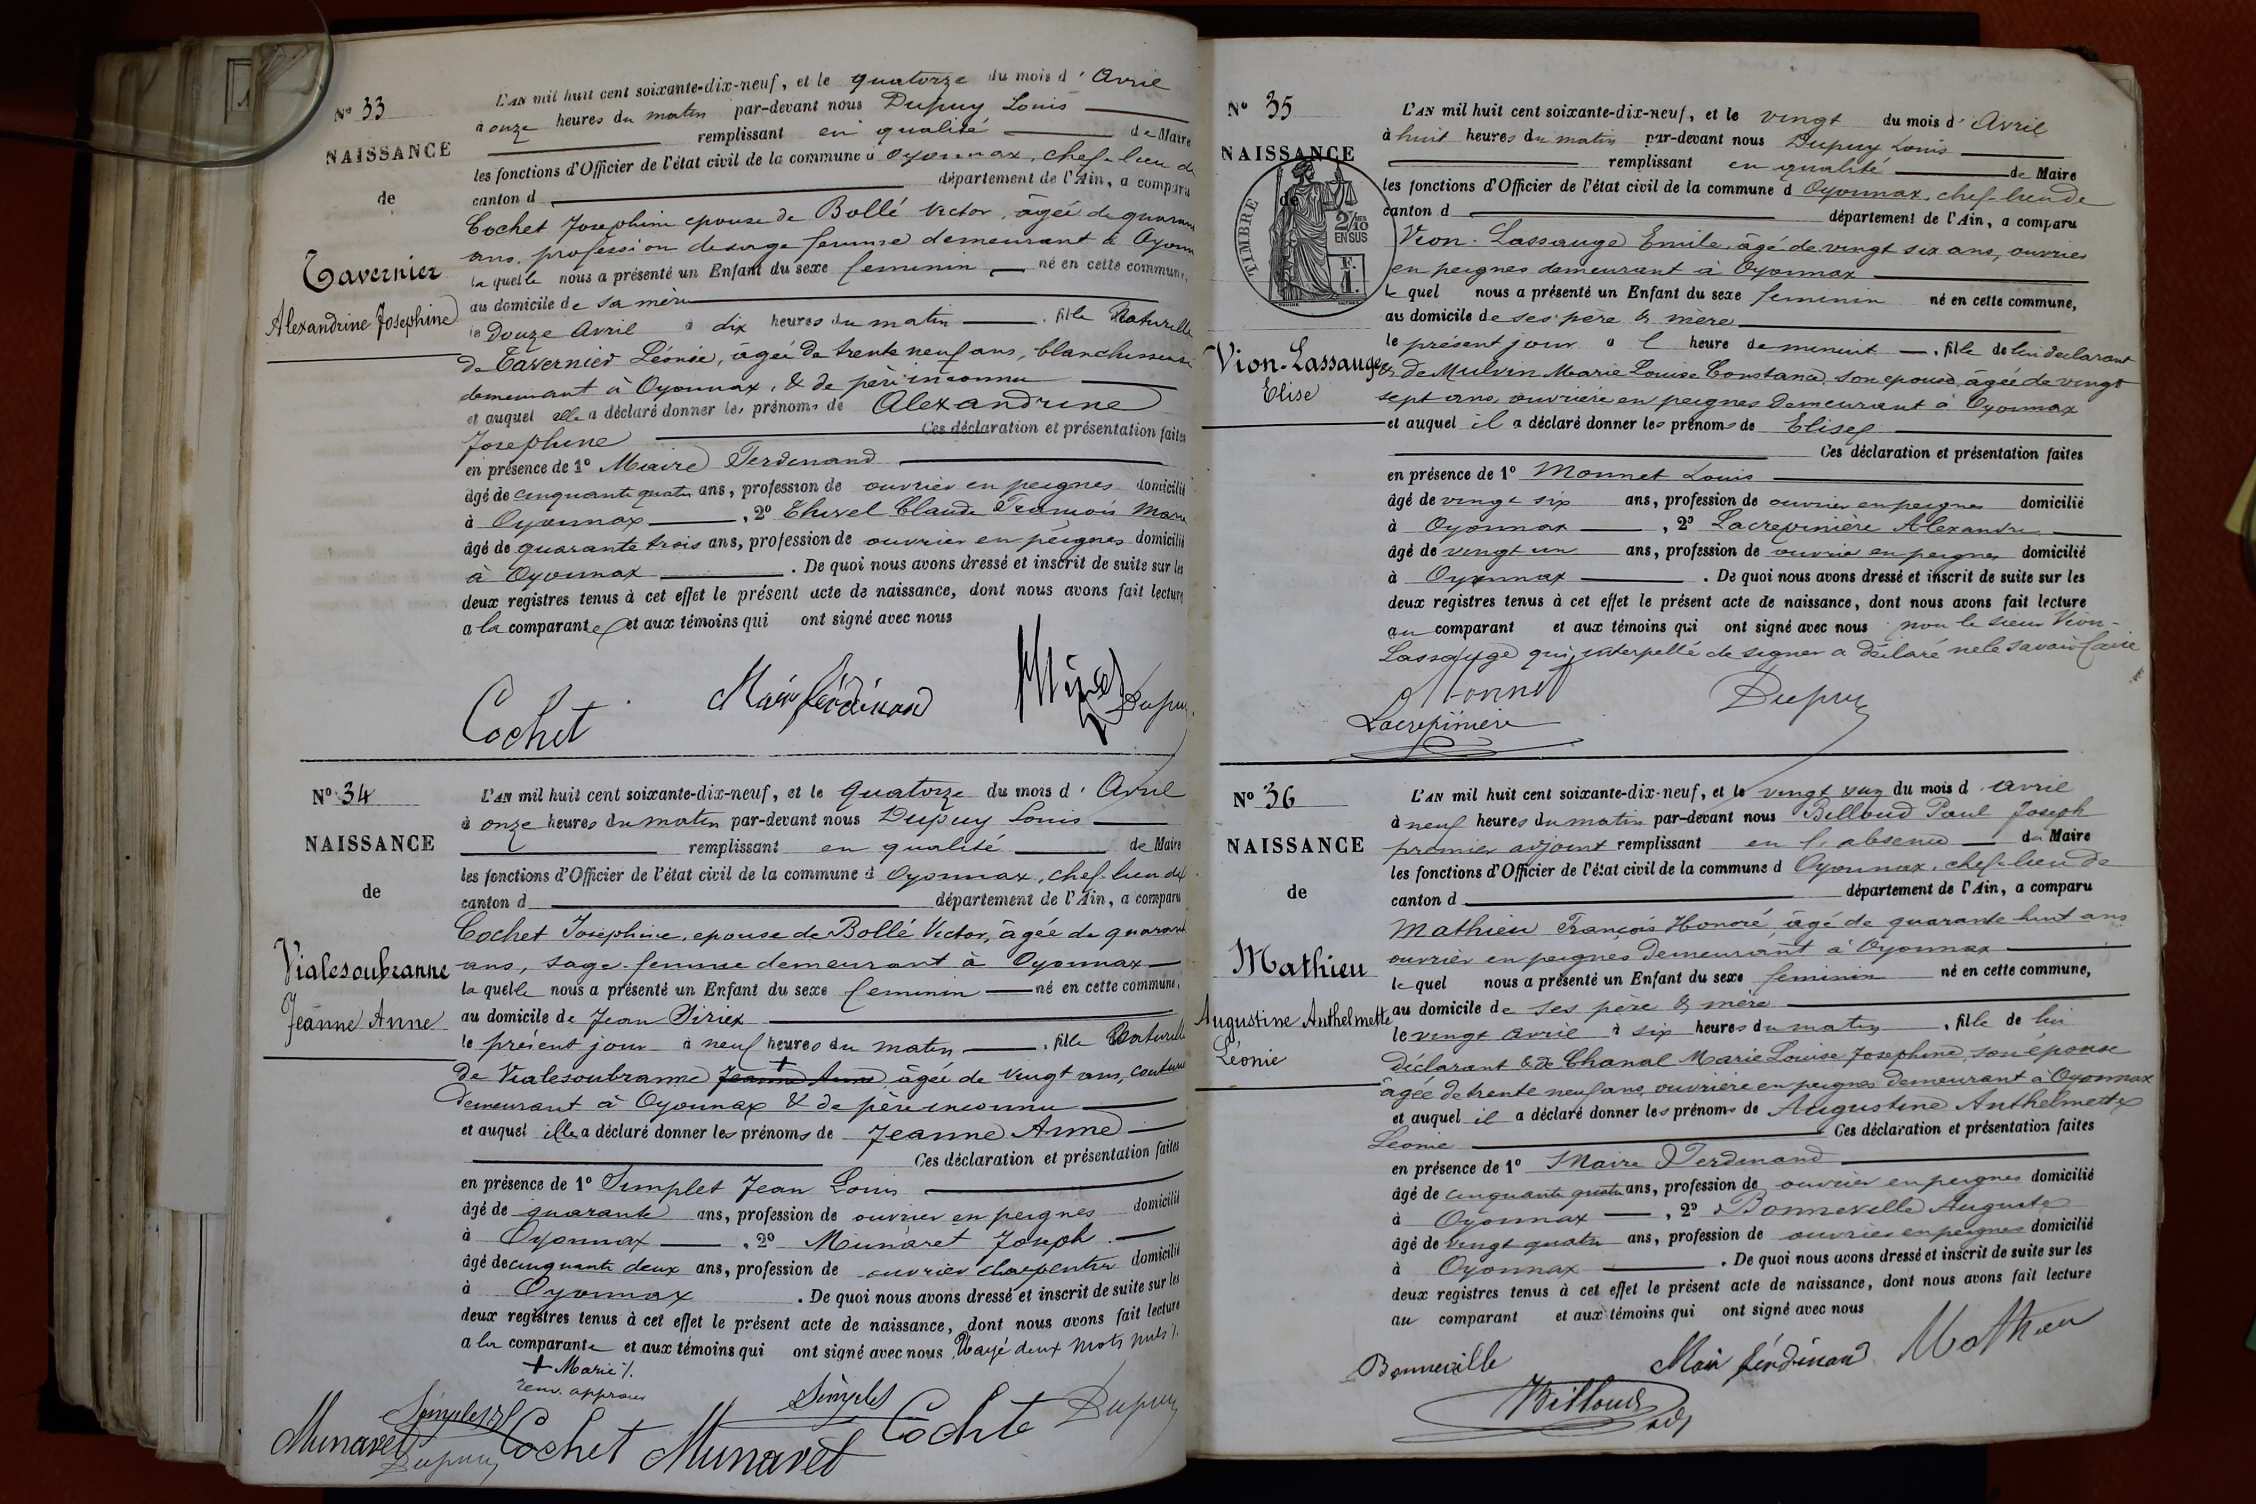 N° 33
NAISSANCE
de
Tavernier
Alexandrine Josephine
L'AN mil huit cent soixante-dix-neuf, et le quatorze du mois d' Avril
à onze heures du matin par-devant nous Dupuy Louis
remplissant en qualité de Maire
les fonctions d'Officier de l'état civil de la commune d Oyonnax, chef-lieu de
canton d département de l'Ain, a comparu
Cochet Josephine epouse de Bollé Victor, âgée de quarante
ans, profession de sage femme demeurant à Oyonnax
la quelle nous a présenté un Enfant du sexe feminin né en cette commune,
au domicile de sa mère
le Douze Avril à dix heures du matin, fille Naturelle
de Tavernier Léonie, âgée de trente neuf ans, blanchisseuse
demeurant à Oyonnax, & de père inconnu
et auquel elle a déclaré donner les prénoms de Alexandrine
Josephine Ces déclaration et présentation faites
en présence de 1° Maire Ferdinand
âgé de cinquante quatre ans, profession de ouvrier en peignes domicilié
à Oyonnax, 2° Claude François Marie
âgé de quarante trois ans, profession de ouvrier en peignes domicilié
à Oyonnax. De quoi nous avons dressé et inscrit de suite sur les
deux registres tenus à cet effet le présent acte de naissance, dont nous avons fait lecture
a la comparante et aux témoins qui ont signé avec nous
Cochet Mair ferdinand Dupuy
N° 34
NAISSANCE
de
Vialesoubranne
Jeanne Anne
L'AN mil huit cent soixante-dix-neuf, et le quatorze du mois d' Avril
à onze heures du matin par-devant nous Dupuy Louis
remplissant en qualité de Maire
les fonctions d'Officier de l'état civil de la commune d Oyonnax, chef-lieu de
canton d département de l'Ain, a comparu
Cochet Joséphine, epouse de Bollé Victor, âgée de quarante
ans, sage-femme demeurant à Oyonnax
la quelle nous a présenté un Enfant du sexe feminin né en cette commune,
au domicile de Jean Piriex
le présent jour à neuf heures du matin, fille Naturelle
de Vialesoubranne Jeanne Anne + âgée de vingt ans, couturière
demeurant à Oyonnax & de père inconnu
et auquel elle a déclaré donner les prénoms de Jeanne Anne
Ces déclaration et présentation faites
en présence de 1° Simplet Jean Louis
âgé de quarante ans, profession de ouvrier en peignes domicilié
à Oyonnax, 2° Munaret Joseph
âgé de cinquante deux ans, profession de ouvrier charpentier domicilié
à Oyonnax. De quoi nous avons dressé et inscrit de suite sur les
deux registres tenus à cet effet le présent acte de naissance, dont nous avons fait lecture
a la comparante et aux témoins qui ont signé avec nous Rayé deux mots nuls
+ Marie
renv. approuvé
Simplet Simplet
Munaret Dupuy Cochet Munaret Cochet Dupuy
N° 35
NAISSANCE
de
TIMBRE
2/10
EN SUS
F.
1.
Vion-Lassauge
Elise
L'AN mil huit cent soixante-dix-neuf, et le vingt du mois d' Avril
à huit heures du matin par-devant nous Dupuy Louis
remplissant en qualité de Maire
les fonctions d'Officier de l'état civil de la commune d Oyonnax, chef-lieu de
canton d département de l'Ain, a comparu
Vion-Lassauge Emile, âgé de vingt six ans, ouvrier
en peignes demeurant à Oyonnax
le quel nous a présenté un Enfant du sexe feminin né en cette commune,
au domicile de ses père & mère
le présent jour à l heure de minuit, fille de lui déclarant
& de Mulvin Marie Louise Constance, son epouse, âgée de vingt
sept ans, ouvrière en peignes demeurant à Oyonnax
et auquel il a déclaré donner les prénoms de Elise
Ces déclaration et présentation faites
en présence de 1° Monnet Louis
âgé de vingt six ans, profession de ouvrier en peignes domicilié
à Oyonnax, 2° Lacrepinière Alexandre
âgé de vingt un ans, profession de ouvrier en peignes domicilié
à Oyonnax. De quoi nous avons dressé et inscrit de suite sur les
deux registres tenus à cet effet le présent acte de naissance, dont nous avons fait lecture
au comparant et aux témoins qui ont signé avec nous non le sieur Vion-
Lassauge qui interpellé de signer a déclaré ne le savoir faire
Monnet Dupuy
Lacrepiniere
N° 36
NAISSANCE
de
Mathieu
Augustine Anthelmette
Léonie
L'AN mil huit cent soixante-dix-neuf, et le vingt un du mois d avril
à neuf heures du matin par-devant nous Billoud Paul Joseph
premier adjoint remplissant en l'absence du Maire
les fonctions d'Officier de l'état civil de la commune d Oyonnax, chef-lieu de
canton d département de l'Ain, a comparu
Mathieu François Honoré, âgé de quarante huit ans
ouvrier en peignes demeurant à Oyonnax
le quel nous a présenté un Enfant du sexe feminin né en cette commune,
au domicile de ses père & mère
le vingt avril à six heures du matin, fille de lui
déclarant & de Chanal Marie Louise Josephine, son épouse
âgée de trente neuf ans, ouvrière en peignes demeurant à Oyonnax
et auquel il a déclaré donner les prénoms de Augustine Anthelmette
Leonie Ces déclaration et présentation faites
en présence de 1° Maire Ferdinand
âgé de cinquante quatre ans, profession de ouvrier en peignes domicilié
à Oyonnax, 2° Bonneville Auguste
âgé de vingt quatre ans, profession de ouvrier en peignes domicilié
à Oyonnax. De quoi nous avons dressé et inscrit de suite sur les
deux registres tenus à cet effet le présent acte de naissance, dont nous avons fait lecture
au comparant et aux témoins qui ont signé avec nous
Bonneville Mair ferdinand Mathieu
Billoud adj